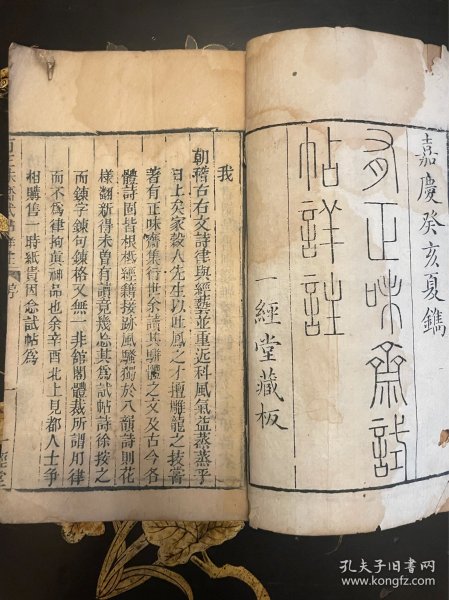 嘉慶癸亥夏鐫
有正味齋試
帖詳註
一經堂藏板
我
朝稽古右文詩律與經藝並重近科風氣盆蒸蒸乎
日上矣家穀人先生以吐鳳之才擅雕龍之技嘗
著有正味齋集行世余讀其駢體之文及古今各
體詩固皆根柢經籍接跡風騷獨於八韻詩則花
樣翻新得未曾有讀竟幾忘其為試帖詩徐按之
而鍊字鍊句鍊格又無一非館閣體裁所謂用律
而不為律拘真神品也余辛酉北上見都人士爭
相購售一時紙貴因念試帖為
孔夫子旧书网
www.kongfz.com